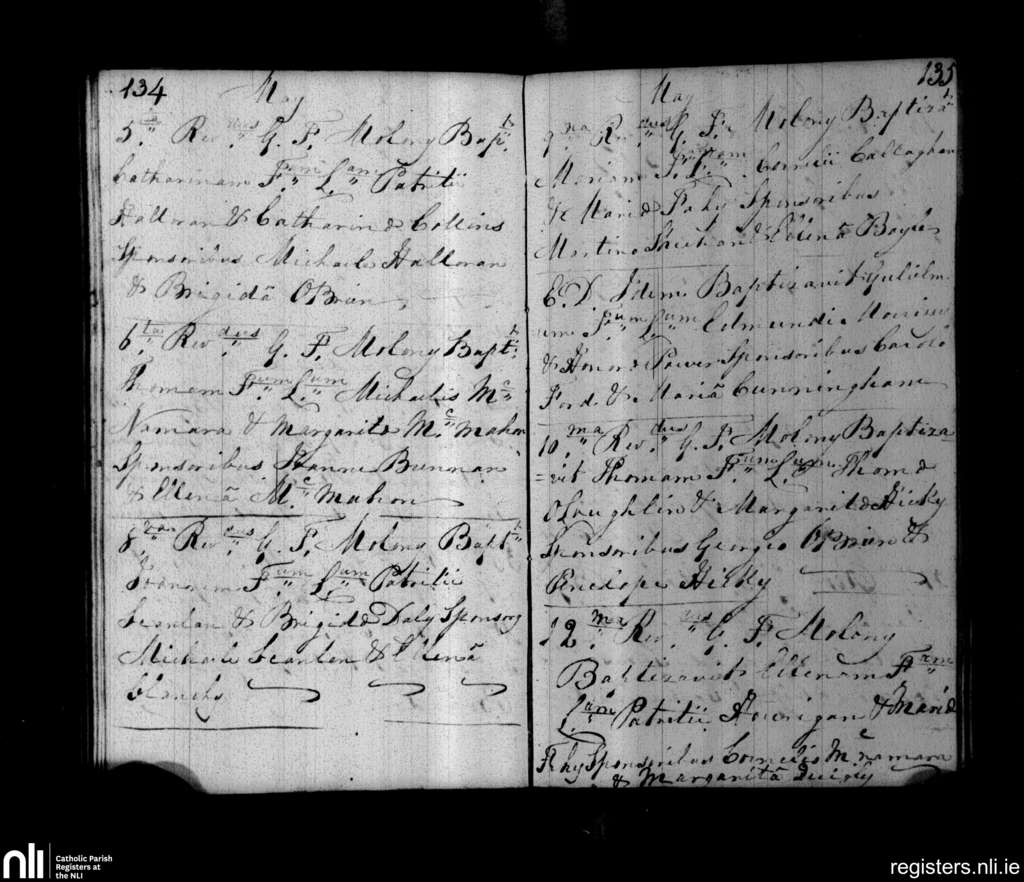 134
May
5ta Revdus G. F. Molony Bapt
Catharinam Fam Lam Patritii
Halloran & Catharinæ Collins
Sponsoribus Michaele Halloran
& Brigidâ OBrien
6ta Revdus G. F. Molony Bapt
Thomam Fum Lum Michaelis Ma
Namara & Margaritæ Mc Mahon
Sponsoribus Brennan
& Ellenâ Mc Mahon
8va Revdus G. F. Molony Bapt
Fum Lum Patritii
Scanlan & Brigidæ Daly Sponsorg
Michaele Scanlan & Ellenâ
135
May
9na Revdus G. F. Molony Baptizt
Mariam F. L. Cornelii Callaghan
& Mariæ Fahy Sponsoribus
Martino Sheehan & Ellenâ Boyle
E. D. Idem Baptizavit Gulielm
um Fum Lum Edmundi
& Honoræ Power Sponsoribus
Ford & Mariâ Cunningham
10ma Revdus G. F. Molony Baptiza
=vit Thomam Fum Lum Thomæ
OLoughlin & Margaritæ Hicky
Sponsoribus Georgio OBrien &
Penelope Hicky
12ma Revdus G. F. Molony
Baptizavit Ellenam Fam
Lam Patritii Hourigan & Mariæ
Fahy Sponsoribus Cornelis Mcnamara
& Margaritâ
nli
Catholic Parish
Registers at
the NLI
registers.nli.ie